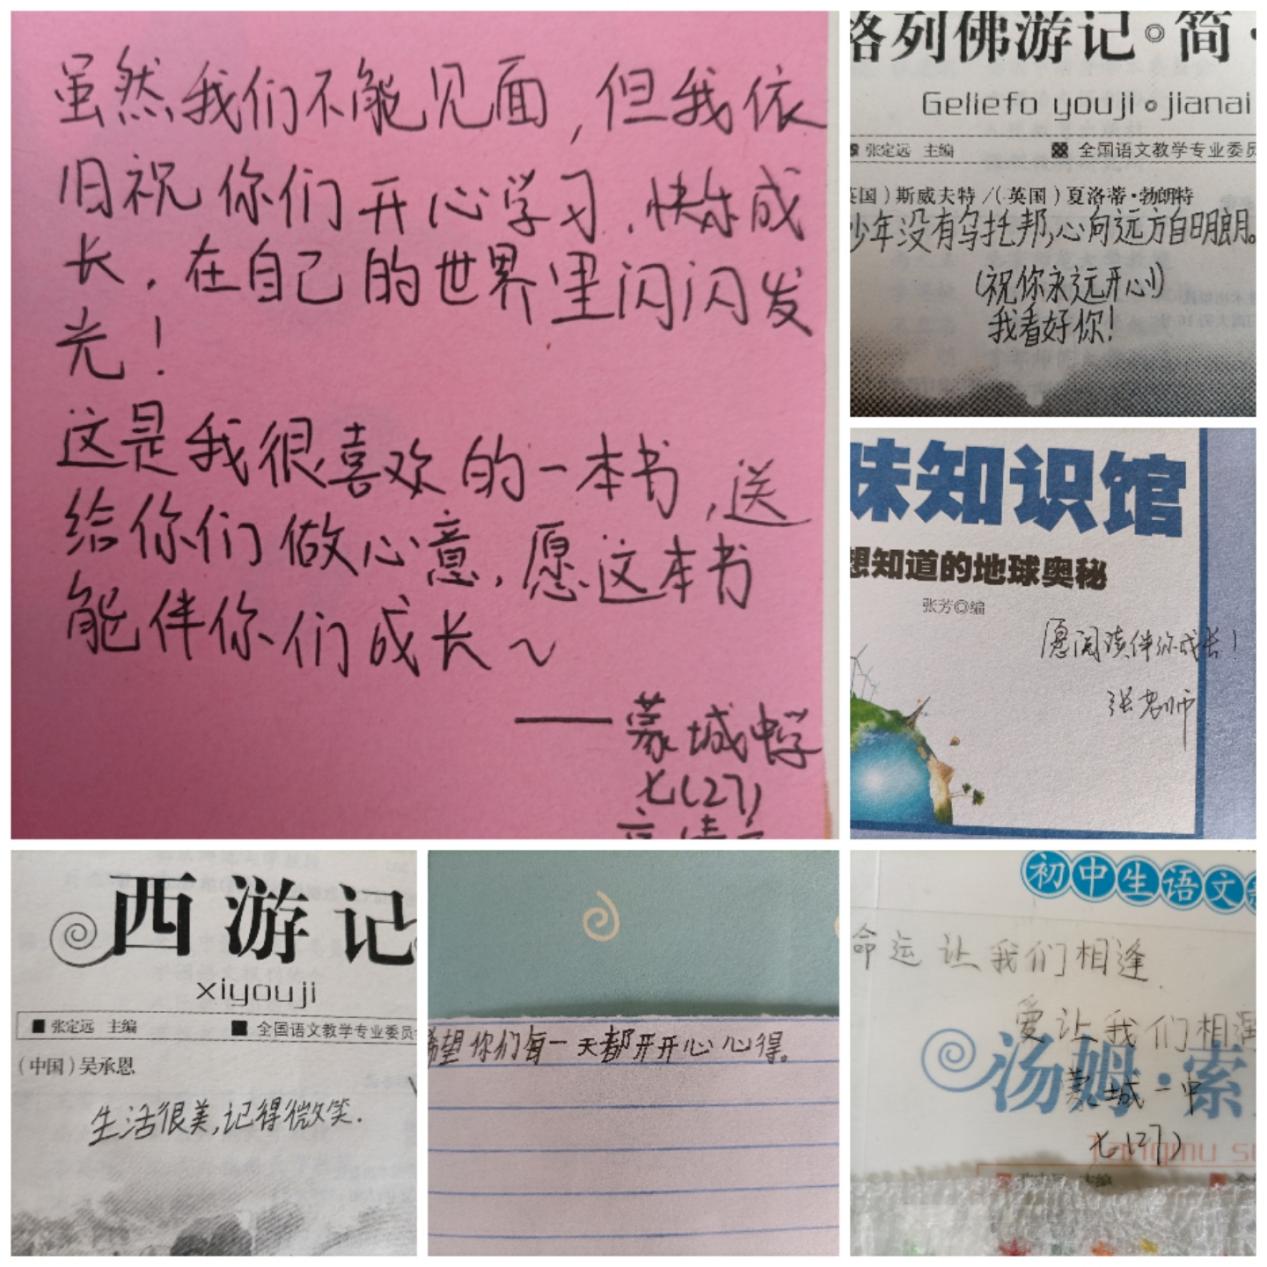 虽然我们不能见面，但我依
旧祝你们开心学习，快乐成
长，在自己的世界里闪闪发
光！
这是我很喜欢的一本书，送
给你们做心意，愿这本书
能伴你们成长～
——蒙城中学
七(27)
格列佛游记◎简·
Geliefo youji◎jianai
张定远 主编
全国语文教学专业委员
英国）斯威夫特/（英国）夏洛蒂·勃朗特
少年没有乌托邦,心向远方自明朗。
(祝你永远开心)
我看好你!
味知识馆
想知道的地球奥秘
张芳◎编
愿阅读伴你成长！
张老师
西游记
xiyouji
■张定远 主编
■全国语文教学专业委员
（中国）吴承恩
生活很美,记得微笑.
希望你们每一天都开开心心得。
初中生语文
命运让我们相逢
爱让我们相遇
汤姆·索
蒙城一中
七(27)
Tangmu su